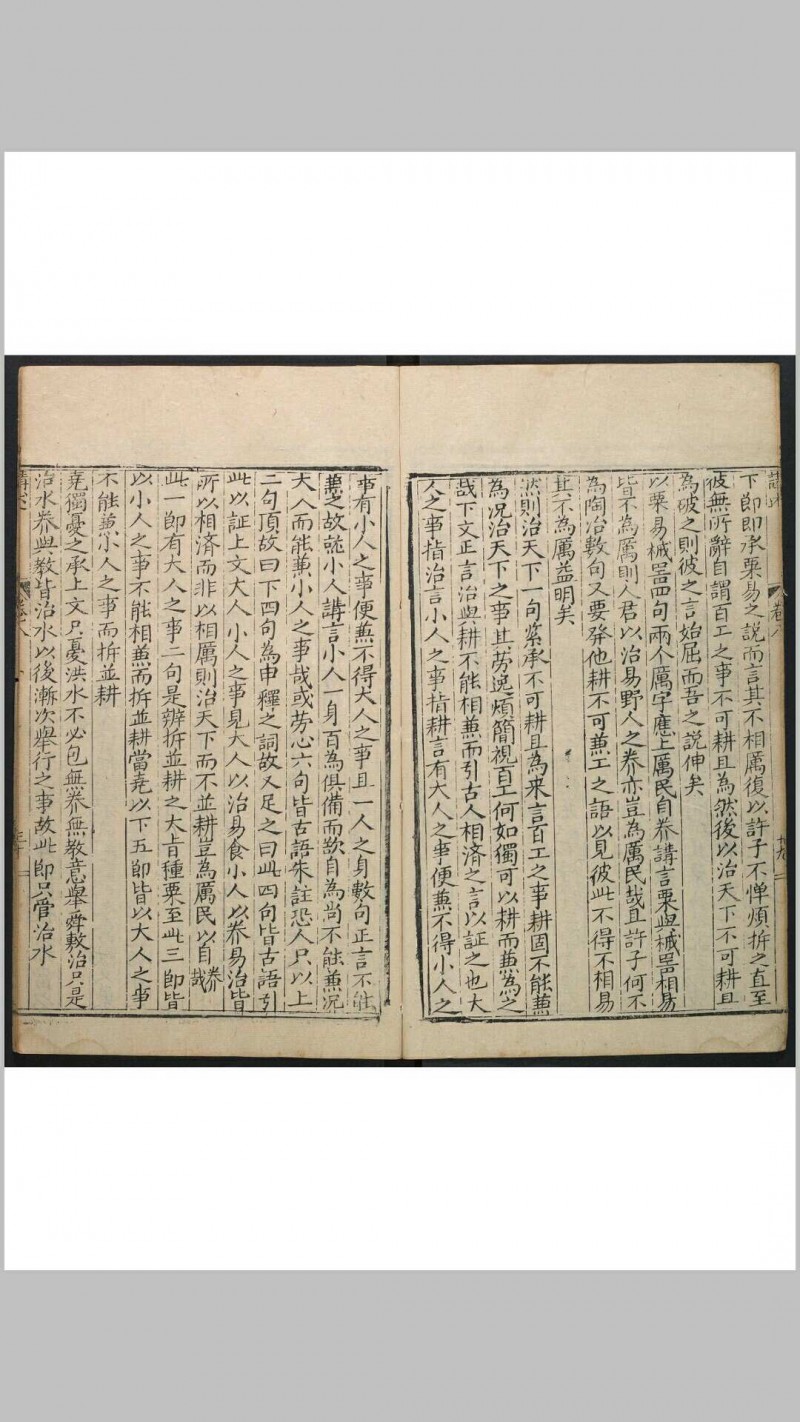 下節即承粟易之說而言其不相厲復以許子不憚煩折之直至
彼無所辭自謂百工之事不可耕且為然後以治天下不可耕且
為破之則彼之言始屈而吾之說伸矣
以粟易械噐四句兩个厲字應上厲民自養講言粟與械噐相易
皆不為厲則人君以治易野人之养亦豈為厲民哉且許子何不
為陶冶數句又要發他耕不可蒹工之語以見彼此不得不相易
其不為厲益明矣
然則治天下一句緊承不可耕且為来言百工之事耕固不能蒹
為况治天下之事其劳逸煩簡視百工何如獨可以耕而蒹為之
哉下文正言治與耕不能相蒹而引古人相济之言以証之也大
人之事指治言小人之事指耕言有大人之事便蒹不得小人之
事有小人之事便蒹不得大人之事且一人之身數句正言不能
蒹之故就小人講言小人一身百為俱俻而欲自為尚不能蒹况
大人而能蒹小人之事哉或劳心六句皆古語朱註恐人只以上
二句頂故曰下四句為申釋之詞故又足之曰此四句皆古語引
此以証上文大人小人之事見大人以治易食小人以养易治皆
所以相济而非以相厲則治天下而不並耕豈為厲民以自养哉
此一節有大人之事二句是辨折並耕之大㫖種粟至此三節皆
以小人之事不能相蒹而折並耕當堯以下五節皆以大人之事
不能蒹小人之事而折並耕
堯獨憂之承上文只憂洪水不必包無养無教意舉舜敷治只是
治水养與教皆治水以後漸次舉行之事故此節只管治水
卷八